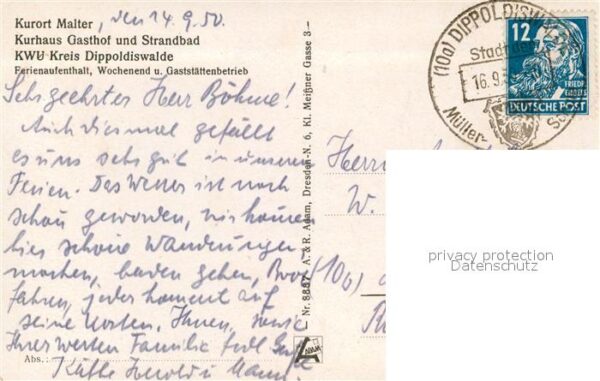 Kurort Malter, den 14.9.50.
Kurhaus Gasthof und Strandbad
KWU Kreis Dippoldiswalde
Ferienaufenthalt, Wochenend u. Gaststättenbetrieb
Sehr geehrter Herr Böhme!
Auch diesmal gefällt
es uns sehr gut in unseren
Ferien. Das Wetter ist noch
schön geworden, wir können
schöne Wanderungen
machen, baden gehen, Boot
fahren, jeder kommt auf
seine Kosten. Ihnen, sowie
Ihrer werten Familie
Abs.: Käthe u. Mann.
Nr. 8887 - A. & R. Adam, Dresden-N. 6, Kl. Meißner Gasse 3 -
ADAM
(10a) DIPPOLDISW
Stadt de
16.9.
Müller-
12
FRIEDR. ENGELS
DEUTSCHE POST
Herrn
W.
(10a)
privacy protection
Datenschutz